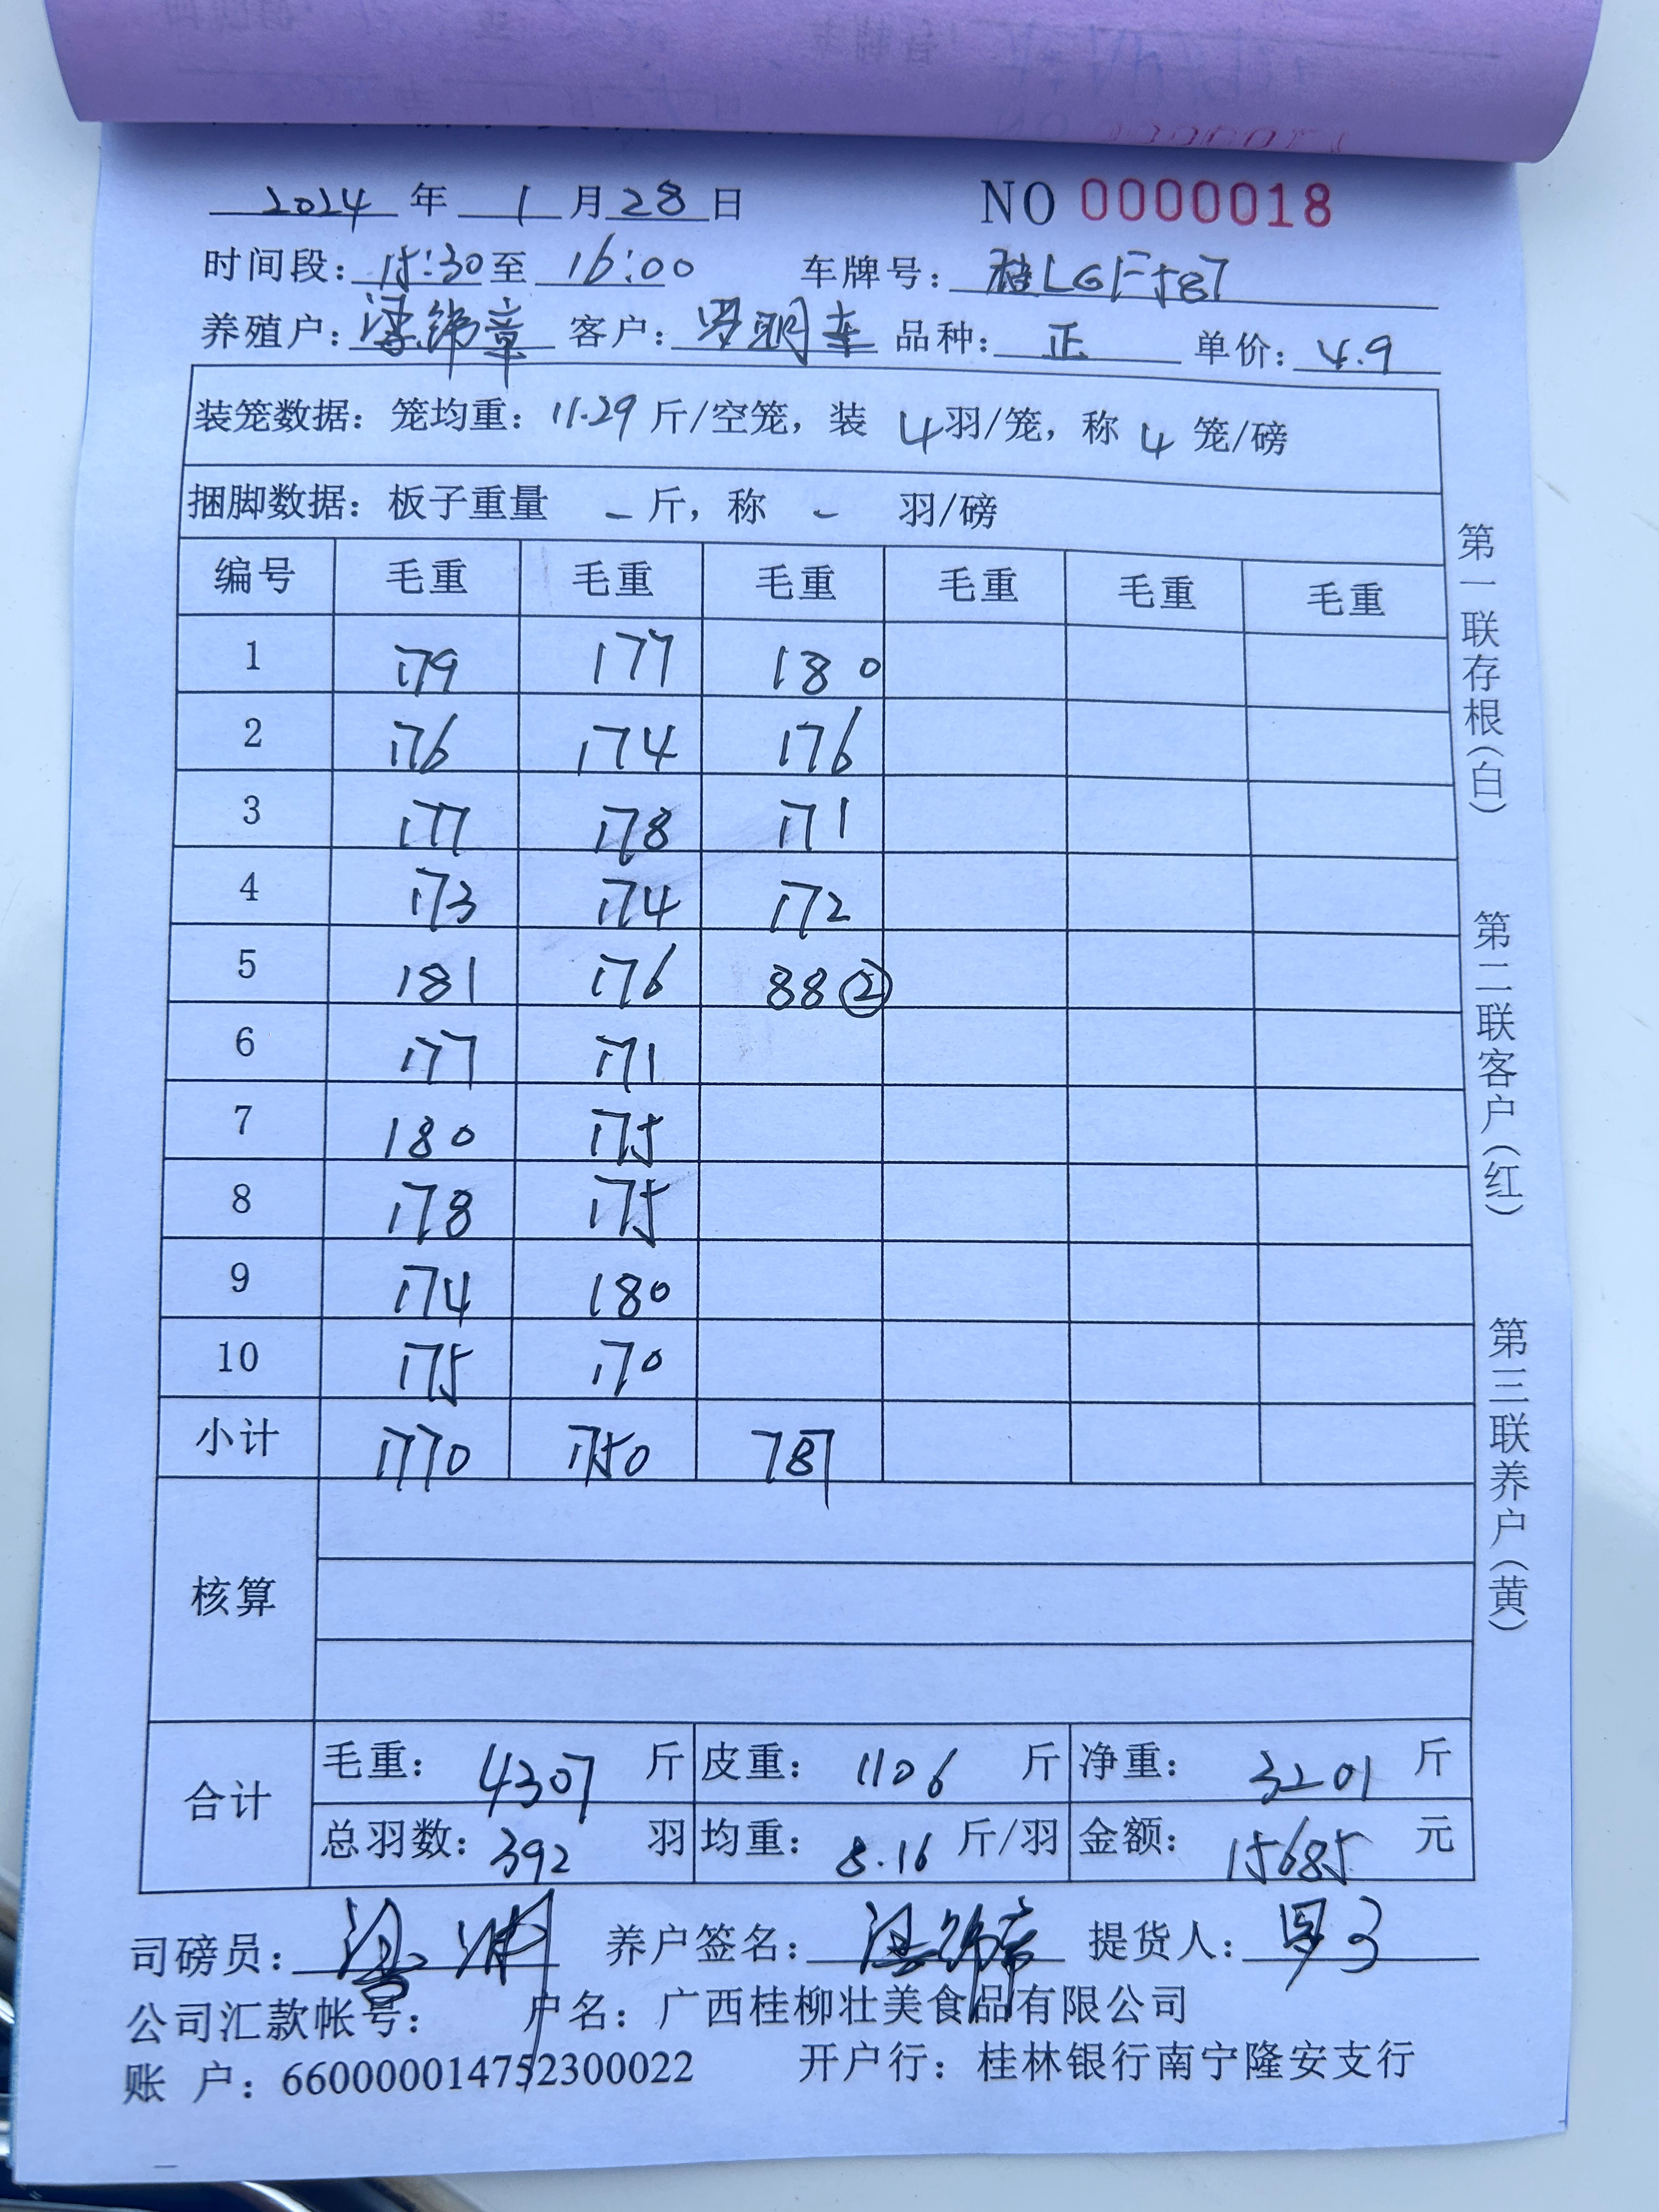 2024 年 1 月 28 日 NO 0000018
时间段: 15:30 至 16:00 车牌号: 桂LGF587
养殖户: 纬章 客户: 罗明 品种: 正 单价: 4.9
装笼数据: 笼均重: 11.29 斤/空笼, 装 4 羽/笼, 称 4 笼/磅
捆脚数据: 板子重量 - 斤, 称 - 羽/磅
编号 毛重 毛重 毛重 毛重 毛重 毛重
1 179 177 180
2 176 174 176
3 177 178 171
4 173 174 172
5 181 176 88 ②
6 177 171
7 180 175
8 178 175
9 174 180
10 175 170
小计 1770 1750 787
核算
合计
毛重: 4307 斤 皮重: 1106 斤 净重: 3201 斤
总羽数: 392 羽 均重: 8.16 斤/羽 金额: 15685 元
司磅员: 养户签名: 提货人:
公司汇款帐号: 户名: 广西桂柳壮美食品有限公司
账 户: 660000014752300022 开户行: 桂林银行南宁隆安支行
第一联存根(白) 第二联客户(红) 第三联养户(黄)